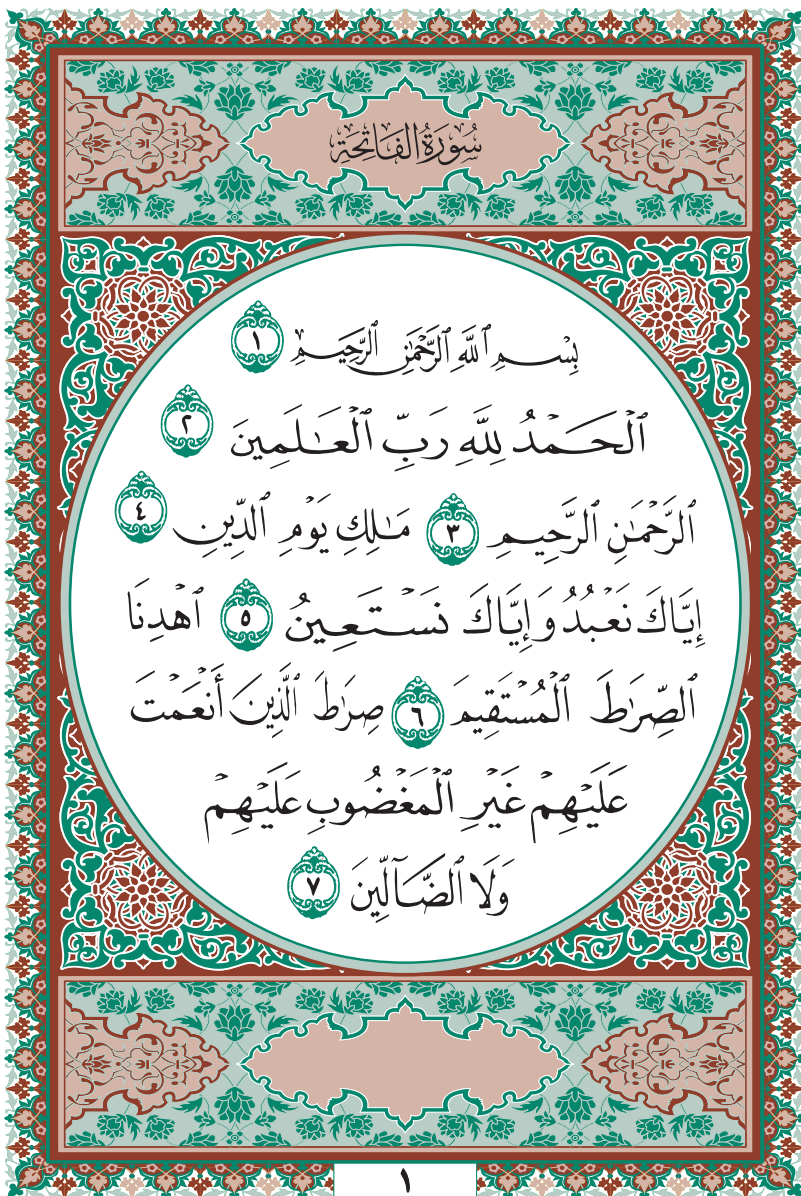 سُورَةُ الفَاتِحَةِ
بِسْمِ ٱللَّهِ ٱلرَّحْمَٰنِ ٱلرَّحِيمِ ١
ٱلْحَمْدُ لِلَّهِ رَبِّ ٱلْعَٰلَمِينَ ٢
ٱلرَّحْمَٰنِ ٱلرَّحِيمِ ٣ مَٰلِكِ يَوْمِ ٱلدِّينِ ٤
إِيَّاكَ نَعْبُدُ وَإِيَّاكَ نَسْتَعِينُ ٥ ٱهْدِنَا
ٱلصِّرَٰطَ ٱلْمُسْتَقِيمَ ٦ صِرَٰطَ ٱلَّذِينَ أَنْعَمْتَ
عَلَيْهِمْ غَيْرِ ٱلْمَغْضُوبِ عَلَيْهِمْ
وَلَا ٱلضَّآلِّينَ ٧
١